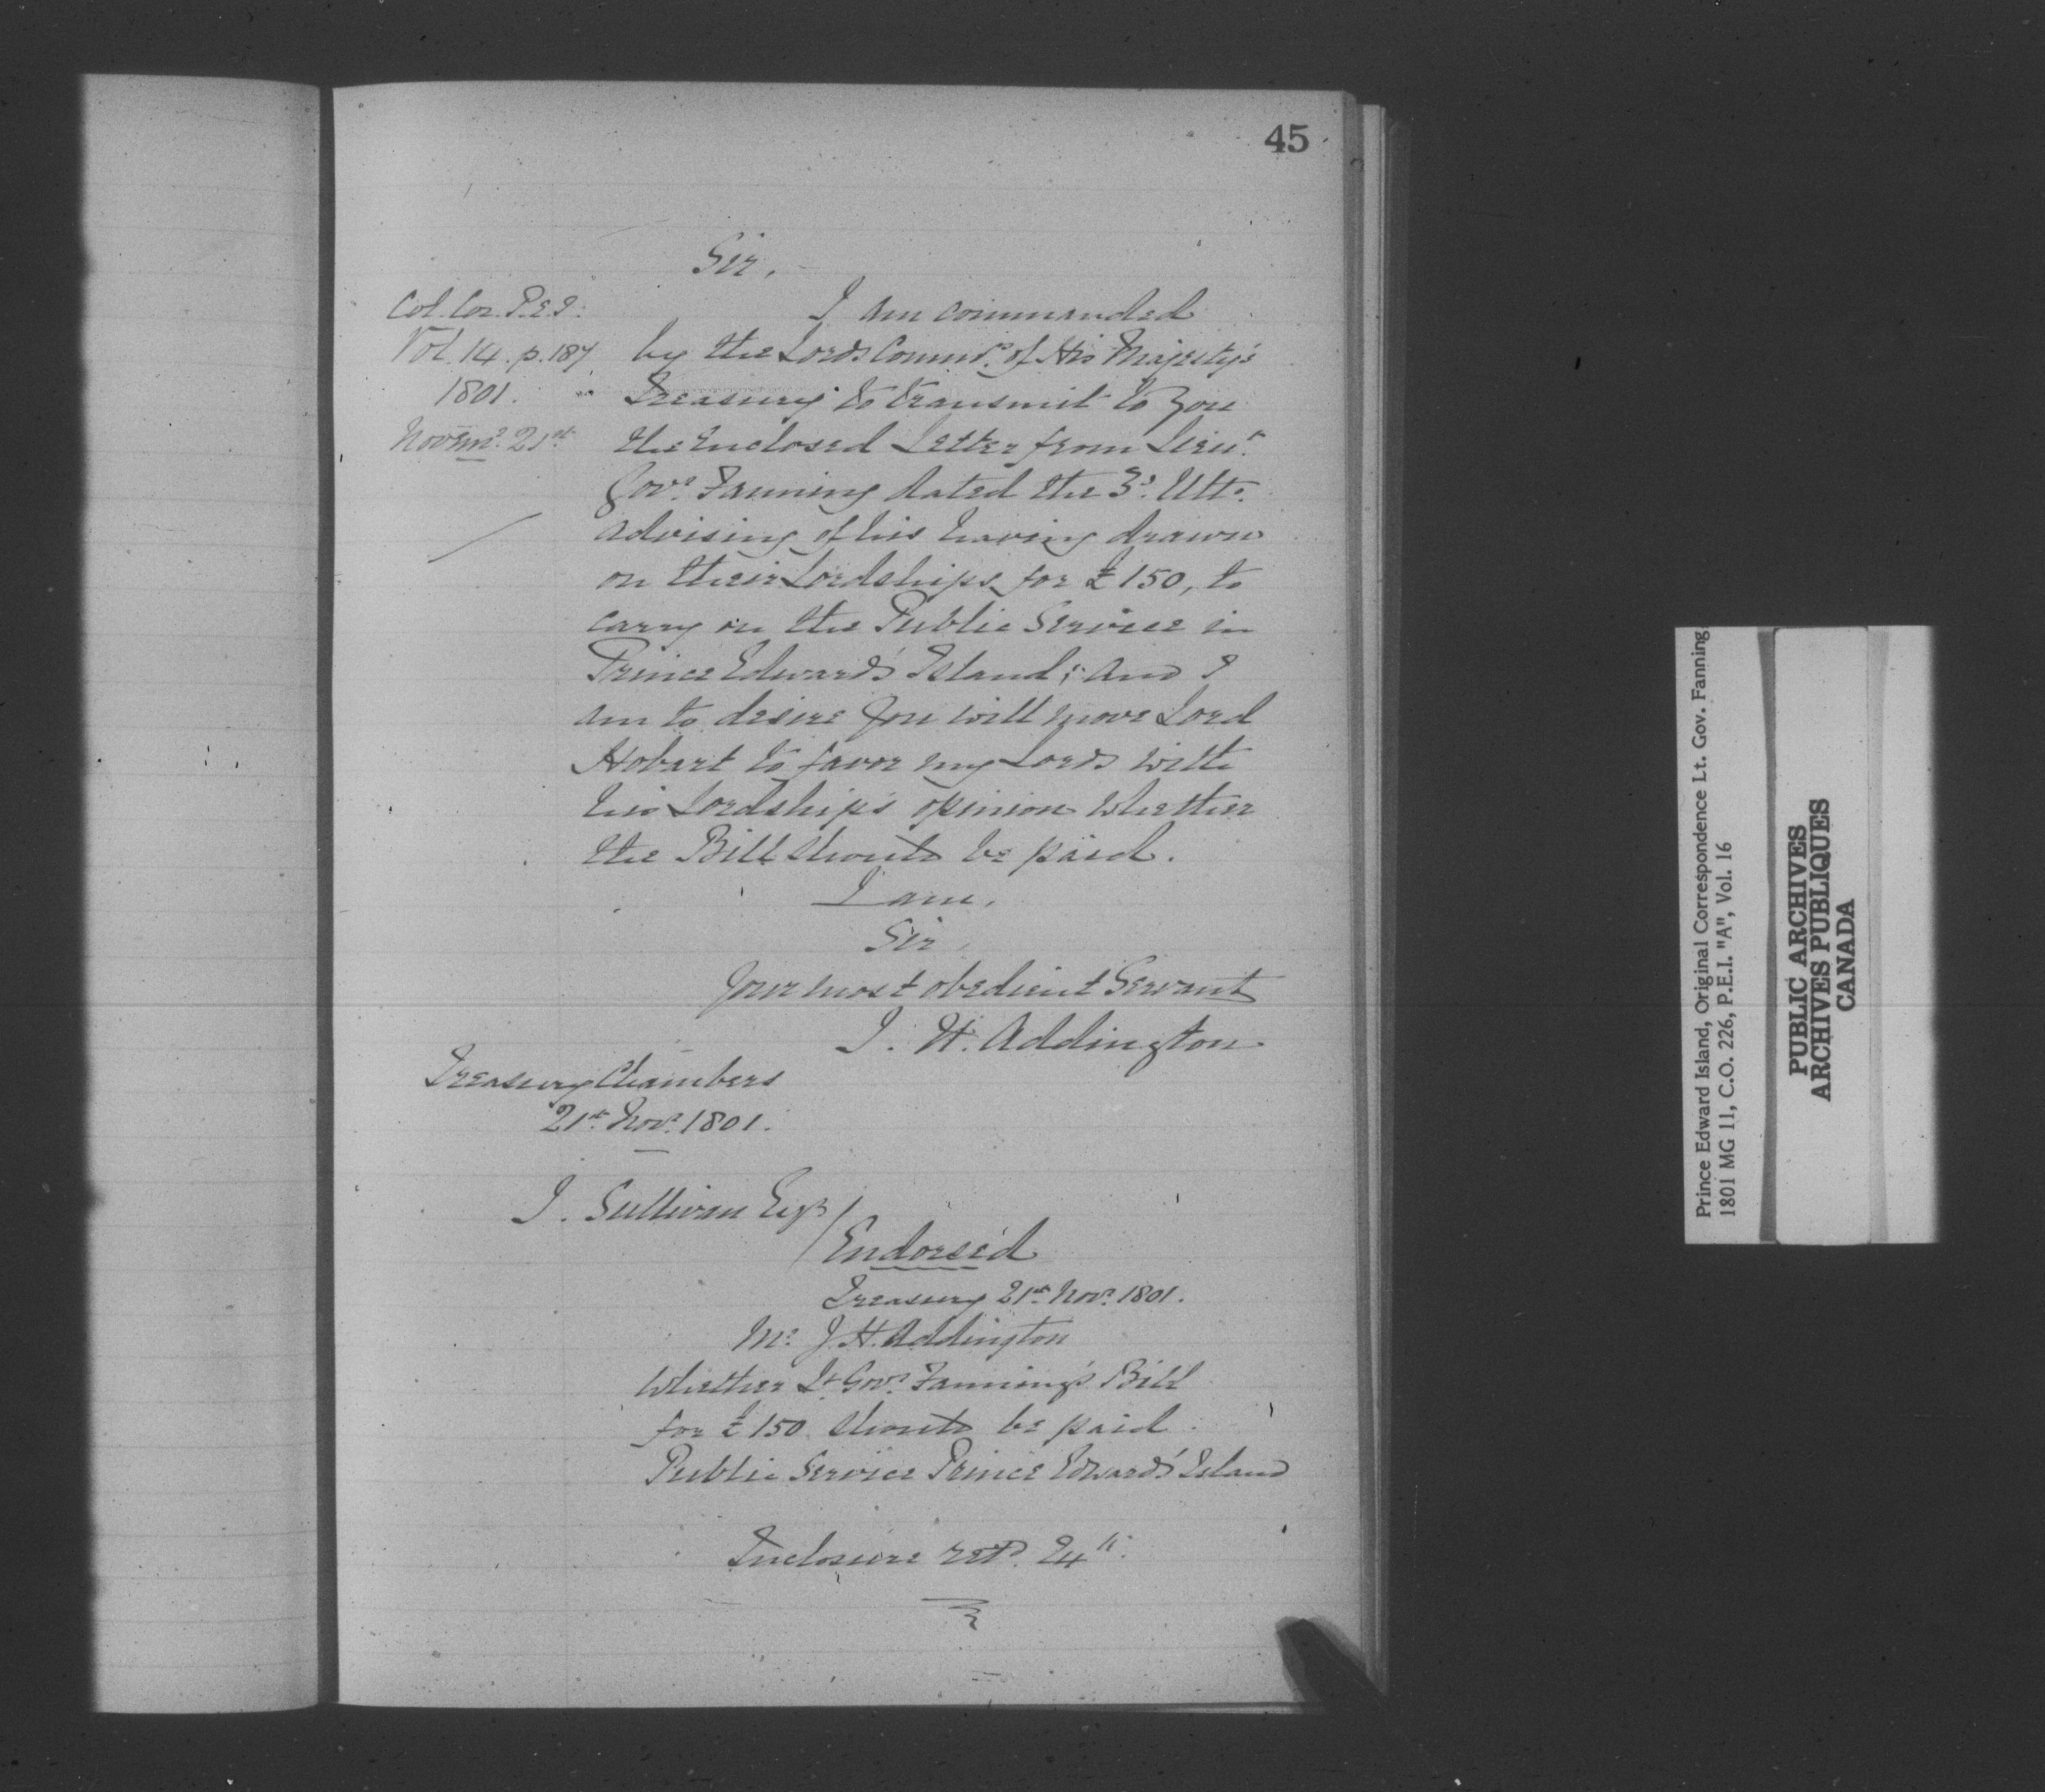 45
Sir,
Col. Cor. P.E.I.
Vol. 14. p. 187
1801.
Novem.r 21st
I am commanded
by the Lords Comm.rs of His Majesty's
Treasury to transmit to you
the Enclosed Letter from Lieu.t
Gov.r Fanning dated the 3.d Ult.o
advising of his having drawn
on their Lordships for £150, to
carry on the Public Service in
Prince Edward's Island; and I
am to desire you will move Lord
Hobart to favor my Lords with
his Lordship's opinion whether
the Bill should be paid.
I am,
Sir,
Your most obedient Servant
J. H. Addington
Treasury Chambers
21st Nov.r 1801.
J. Sullivan Esq.r
Endorsed
Treasury 21st Nov.r 1801.
Mr. J. H. Addington
Whether Lt. Gov.r Fanning's Bill
for £150 should be paid.
Public Service Prince Edward's Island
Inclosure ret.d 24th.
Prince Edward Island, Original Correspondence Lt. Gov. Fanning
1801 MG 11, C.O. 226, P.E.I. "A", Vol. 16
PUBLIC ARCHIVES
ARCHIVES PUBLIQUES
CANADA